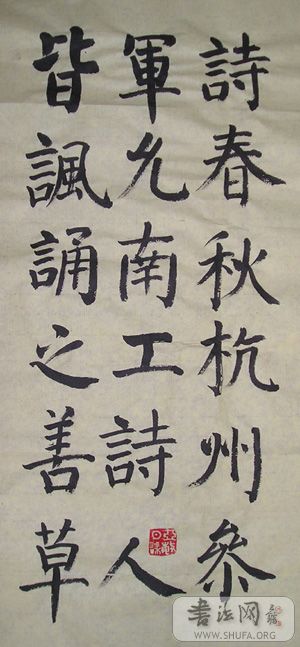 詩春秋杭州參
軍允南工詩人
皆諷誦之善草
書法网
WWW.SHUFA.ORG